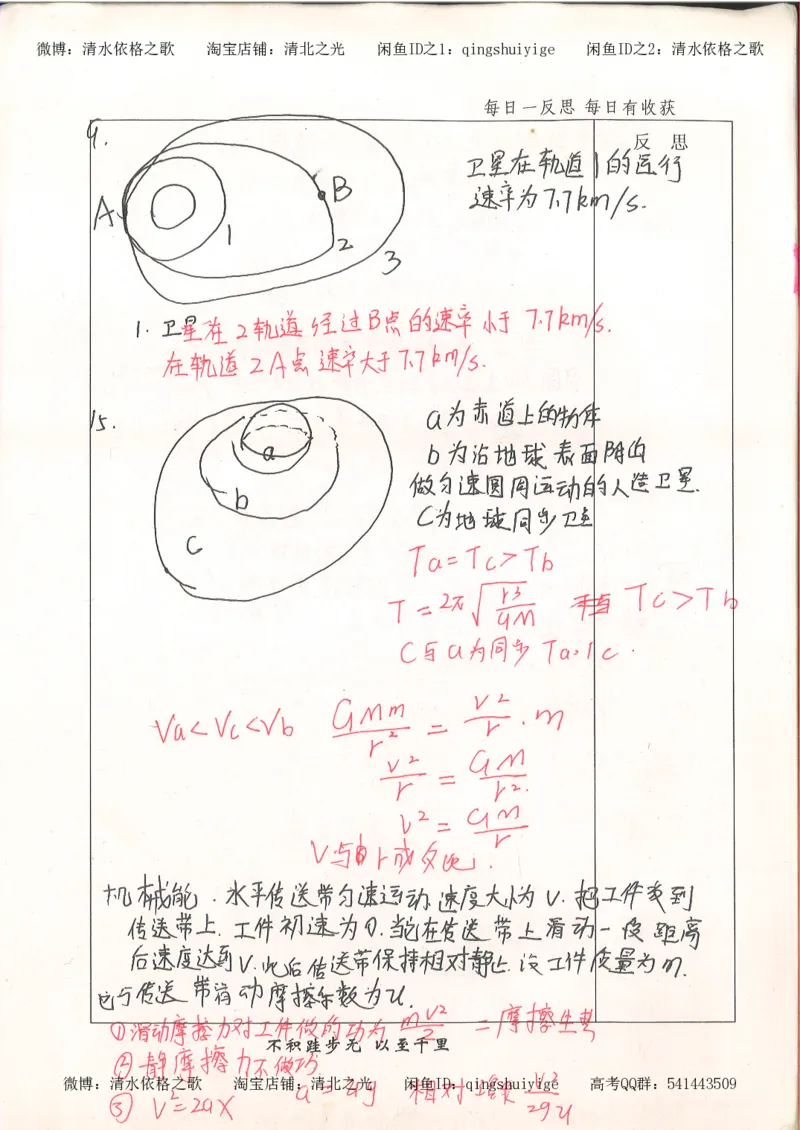 微博：清水依格之歌 淘宝店铺：清北之光 闲鱼ID之1：qingshuiyige 闲鱼ID之2：清水依格之歌
每日一反思 每日有收获
反 思
9.
卫星在轨道1的运行
速率为7.7km/s.
A
B
1
2
3
1. 卫星在2轨道经过B点的速率小于7.7km/s.
在轨道2A点速率大于7.7km/s.
15.
a
b
c
a为赤道上的物体
b为沿地球表面附近
做匀速圆周运动的人造卫星.
C为地球同步卫星
Ta=Tc>Tb
T=2π√(r³/GM) Tc>Tb
C与a为同步 Ta=Tc.
Va<Vc<Vb GMm/r²=v²/r·m
v²/r=GM/r².
v²=GM/r
V与r成反比.
机械能.水平传送带匀速运动,速度大小为V.把工件放到
传送带上.工件初速为0.当它在传送带上滑动一段距离
后速度达到V.此后传送带保持相对静止.设工件质量为m.
它与传送带滑动摩擦系数为u.
①滑动摩擦力对工件做的功为mv²/2=摩擦生热
不积跬步无以至千里
②静摩擦力不做功
微博：清水依格之歌 淘宝店铺：清北之光 闲鱼ID：qingshuiyige 高考QQ群：541443509
③ v²=2ax a=ug 相对 v²/2gu